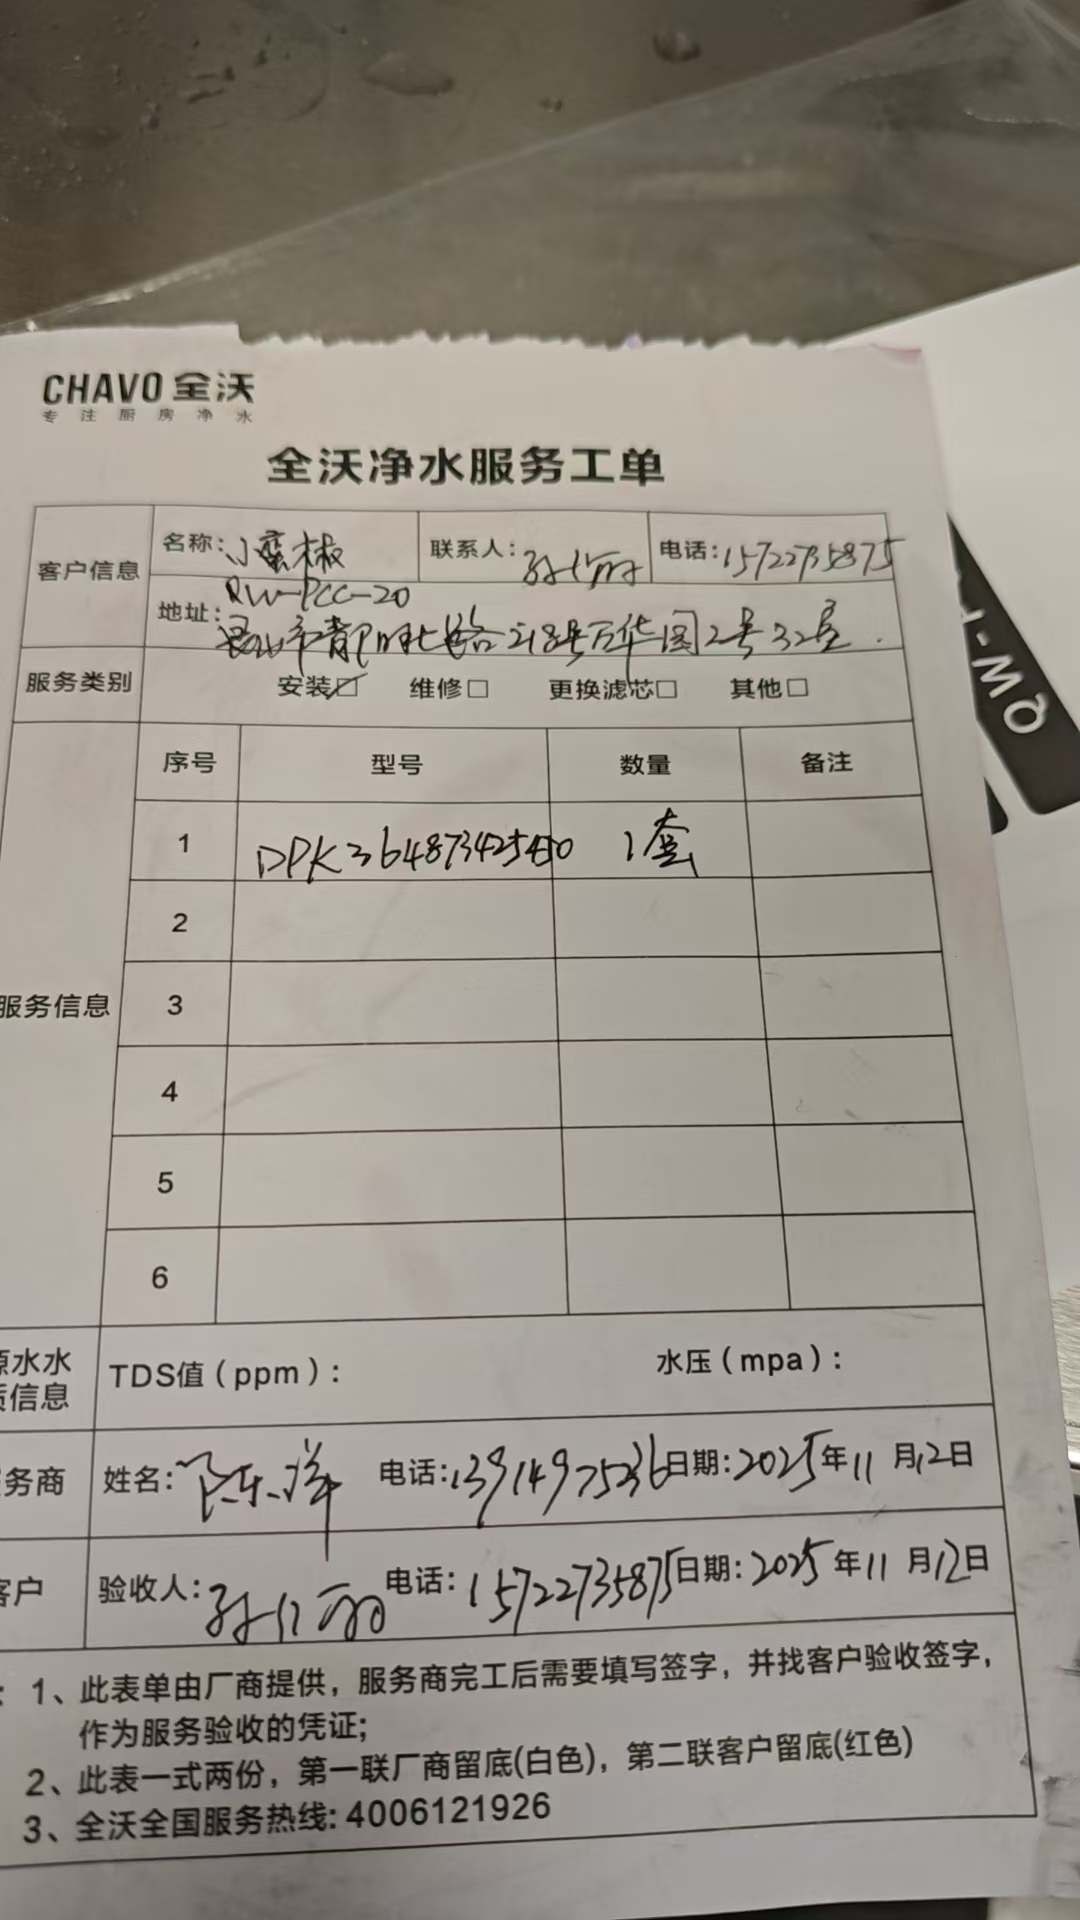 CHAVO 全沃
专注厨房净水
全沃净水服务工单
客户信息
名称: 小蛮椒
联系人: 孙
电话: 15722735875
RW-PCC-20
地址: 昆山市 路218号万华园2号32室.
服务类别
安装☑ 维修□ 更换滤芯□ 其他□
序号 型号 数量 备注
1 DPK364873425450 1套
2
服务信息 3
4
5
6
源水水
质信息
TDS值(ppm): 水压(mpa):
务商 姓名: 陈洋 电话: 13914975236 日期: 2025年11月12日
客户 验收人: 孙 电话: 15722735875 日期: 2025年11月12日
: 1、此表单由厂商提供，服务商完工后需要填写签字，并找客户验收签字，
作为服务验收的凭证;
2、此表一式两份，第一联厂商留底(白色)，第二联客户留底(红色)
3、全沃全国服务热线: 4006121926